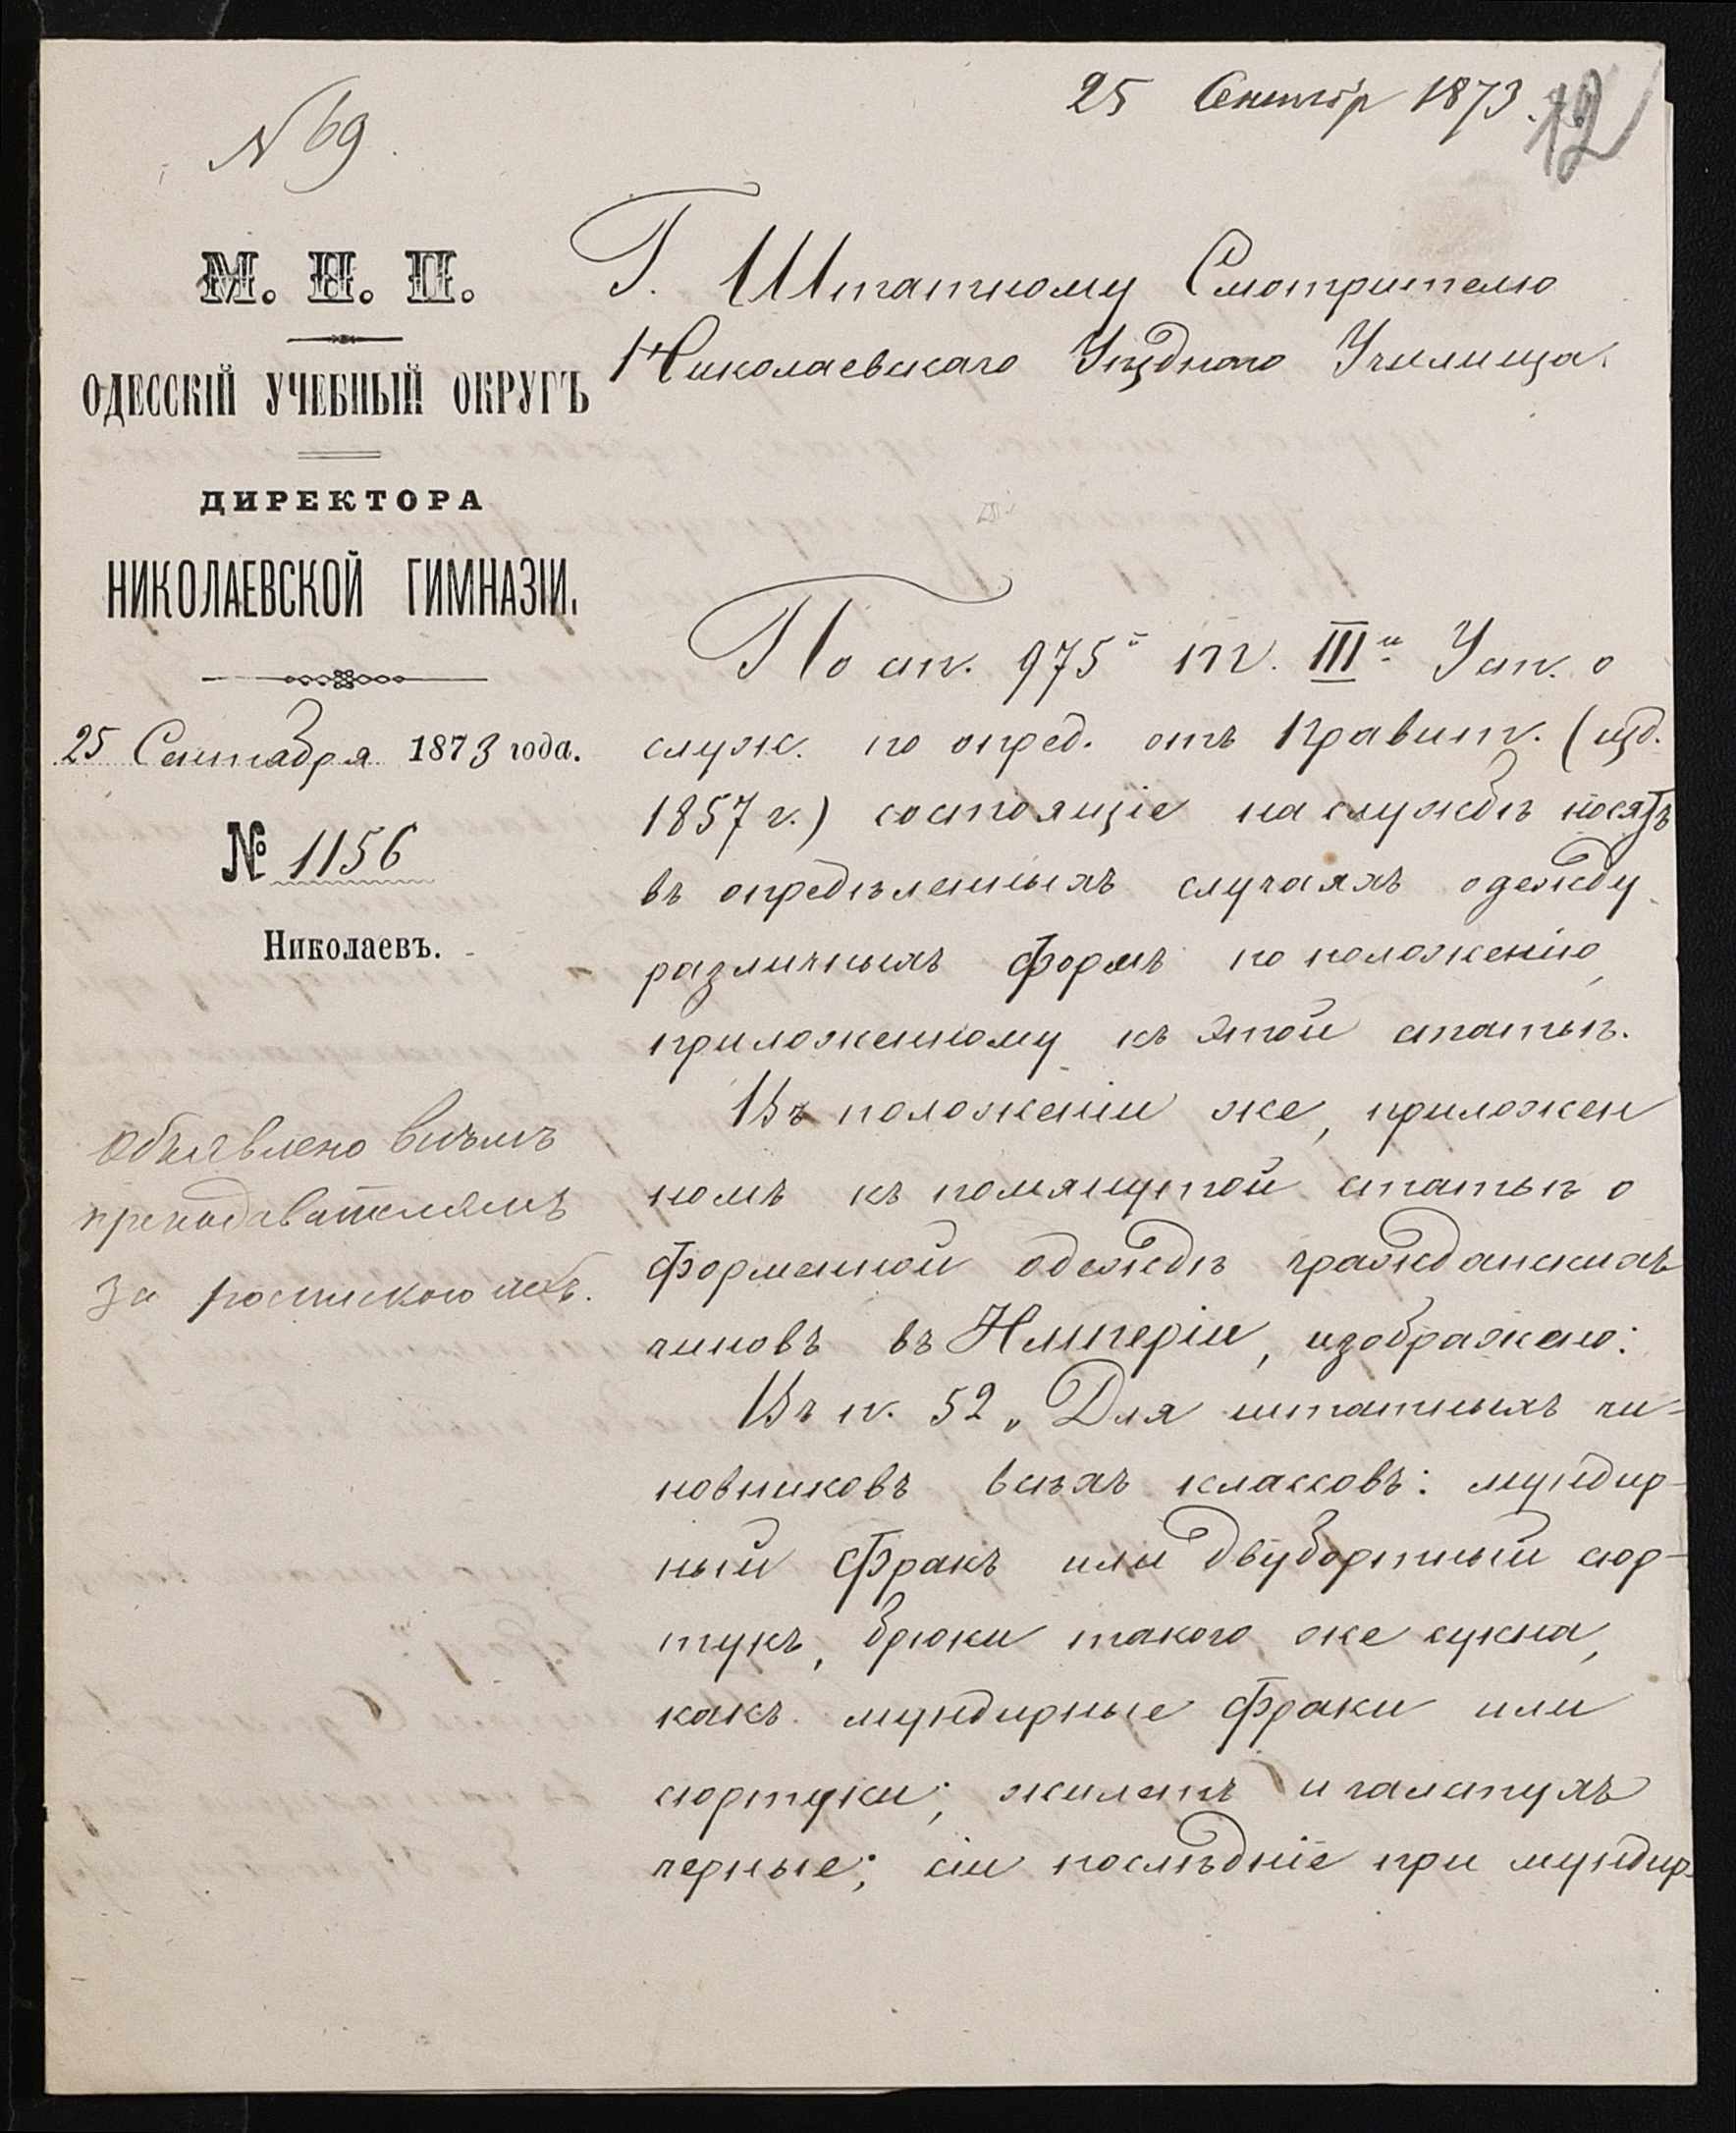 25 Сентбр 1873.
12
№ 69
М. Н. П.
ОДЕССКІЙ УЧЕБНЫЙ ОКРУГЪ
ДИРЕКТОРА
НИКОЛАЕВСКОЙ ГИМНАЗІИ.
25 Сентября 1873 года.
№ 1156
Николаевъ.
Объявлено всѣмъ
преподавателямъ
за роспискою ихъ.
Г. Штатному Смотрителю
Николаевскаго Уѣзднаго Училища.
По ст. 975й т. IIIго Уст. о
служ. по опред. отъ Правит. (изд.
1857 г.) состоящіе на службѣ носятъ
въ опредѣленныхъ случаяхъ одежду
различныхъ формъ по положенію,
приложенному къ этой статьѣ.
Въ положеніи же, приложен
номъ къ помянутой статьѣ о
форменной одеждѣ гражданскихъ
чиновъ въ Имперіи, изображено:
Въ п. 52 „Для штатныхъ чи=
новниковъ всѣхъ классовъ: мундир-
ный фракъ или двубортный сюр-
тукъ, брюки такого же сукна,
какъ мундирные фраки или
сюртуки; жилетъ и галстухъ
черные; сіи послѣдніе при мундир